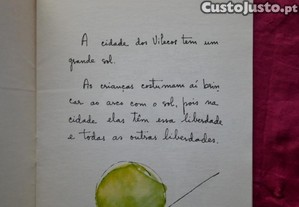 CustoJusto.pt
A cidade dos Vilecos têm um
grande sol.
As crianças costumam aí brin
car ao arco com o sol, pois na
cidade elas têm essa liberdade
e todas as outras liberdades.